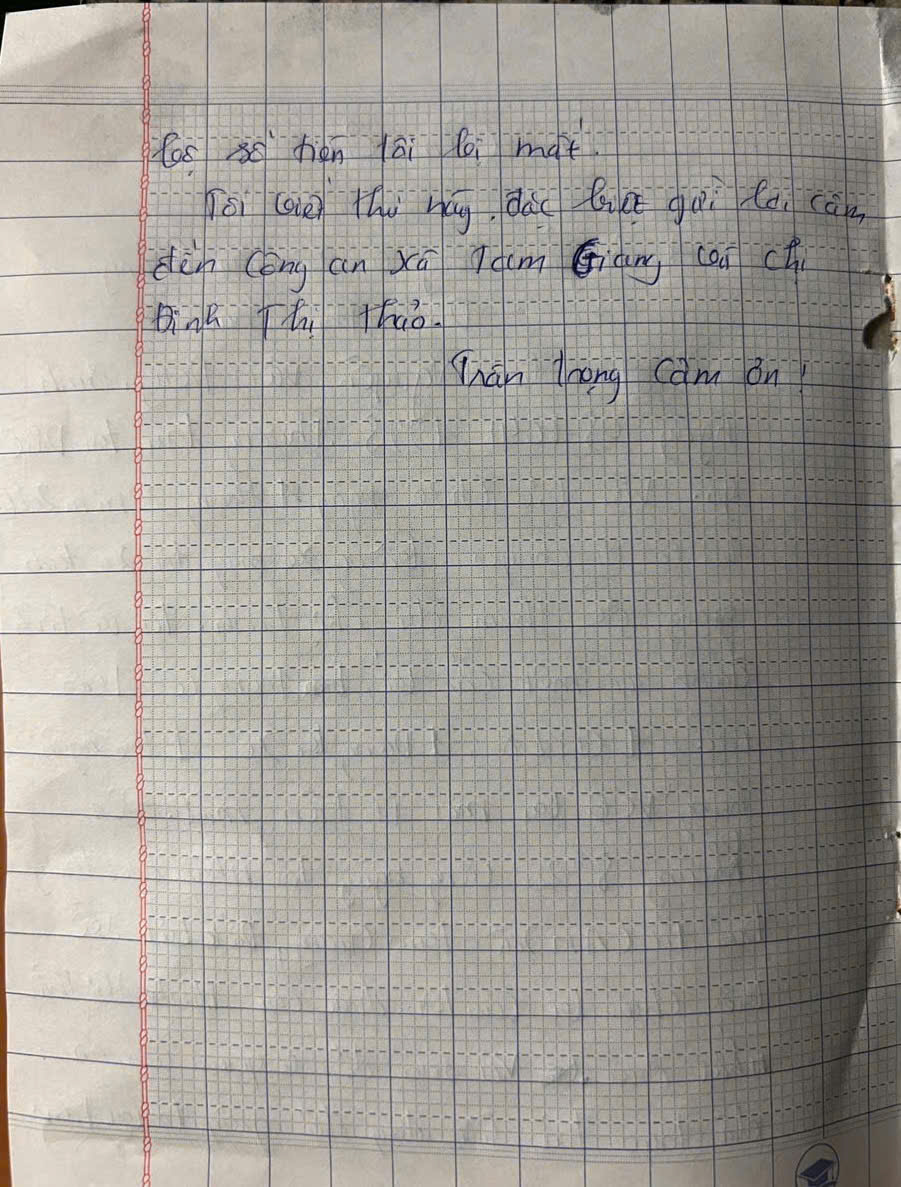 lại số tiền tôi bị mất.
Tôi viết thư này, đặc biệt gửi lời cảm
đến Công an xã Tam Giang và chị
Đinh Thị Thảo.
Trân trọng cảm ơn!